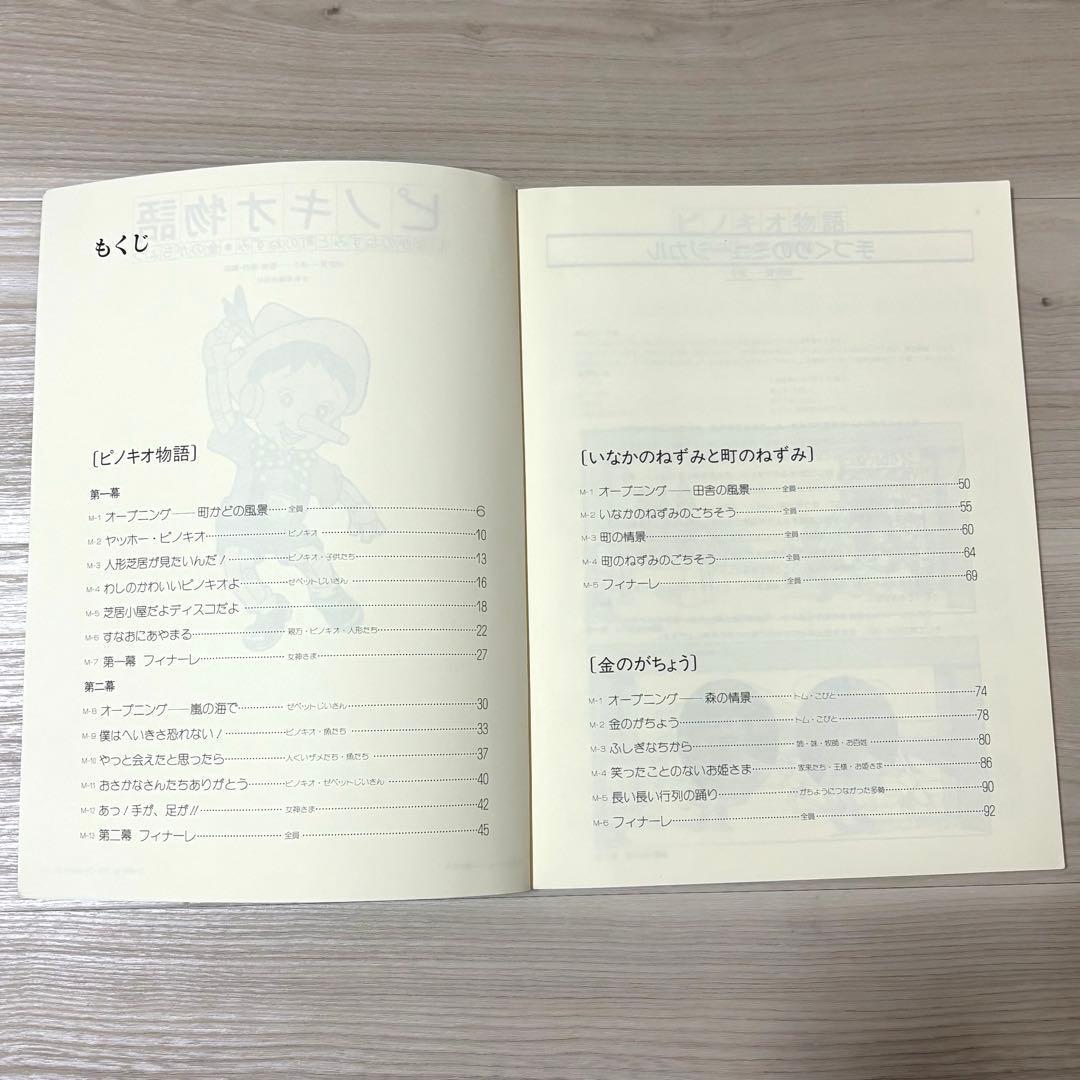 もくじ
〔ピノキオ物語〕
第一幕
M-1 オープニング——町かどの風景………全員………6
M-2 ヤッホー・ピノキオ………ピノキオ………10
M-3 人形芝居が見たいんだ！………ピノキオ・子供たち………13
M-4 わしのかわいいピノキオよ………ゼペットじいさん………16
M-5 芝居小屋だよディスコだよ………18
M-6 すなおにあやまる………親方・ピノキオ・人形たち………22
M-7 第一幕 フィナーレ………女神さま………27
第二幕
M-8 オープニング——嵐の海で………ゼペットじいさん………30
M-9 僕はへいきさ恐れない！………ピノキオ・魚たち………33
M-10 やっと会えたと思ったら………人くいザメたち・魚たち………37
M-11 おさかなさんたちありがとう………ピノキオ・ゼペットじいさん………40
M-12 あっ！手が、足が!!………女神さま………42
M-13 第二幕 フィナーレ………全員………45
〔いなかのねずみと町のねずみ〕
M-1 オープニング——田舎の風景………全員………50
M-2 いなかのねずみのごちそう………全員………55
M-3 町の情景………全員………60
M-4 町のねずみのごちそう………全員………64
M-5 フィナーレ………全員………69
〔金のがちょう〕
M-1 オープニング——森の情景………トム・こびと………74
M-2 金のがちょう………トム・こびと………78
M-3 ふしぎなちから………姉・妹・牧師・お百姓………80
M-4 笑ったことのないお姫さま………家来たち・王様・お姫さま………86
M-5 長い長い行列の踊り………がちょうにつながった多勢………90
M-6 フィナーレ………全員………92